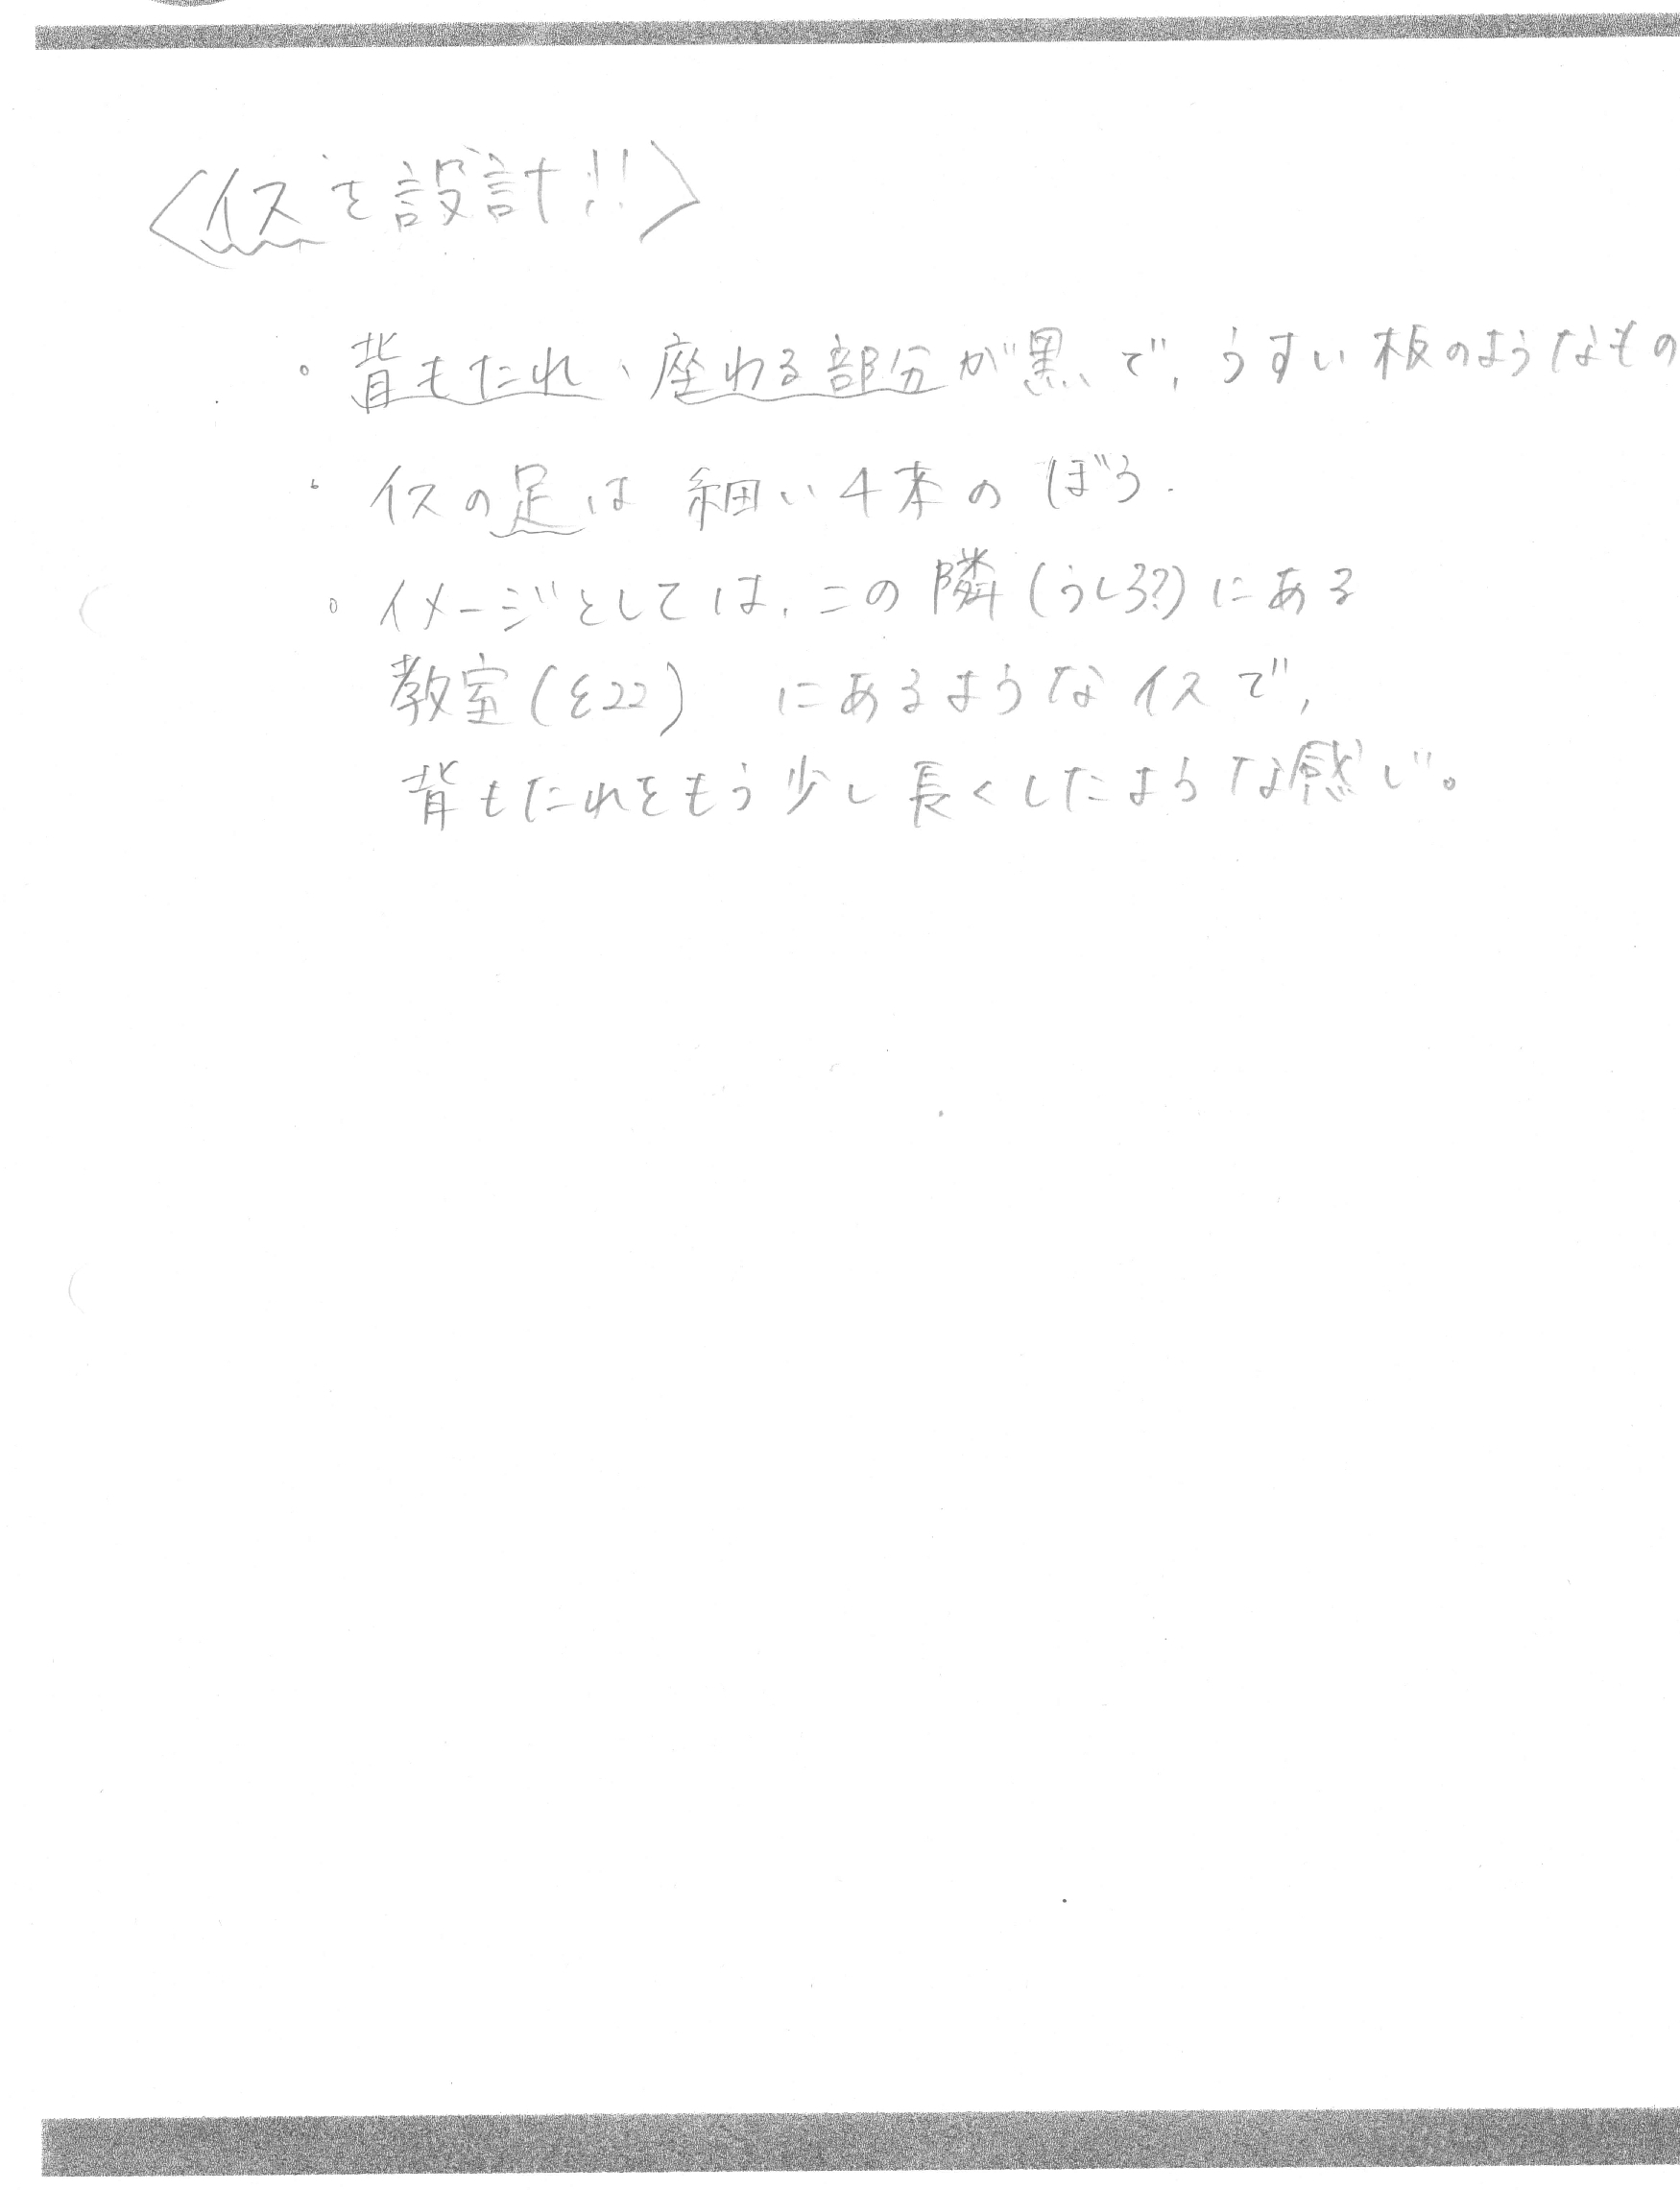 <イスを設計!!>
・背もたれ、座わる部分が黒で,うすい板のようなもの
・イスの足は 細い4本の ぼう.
・イメージとしては,この隣(うしろ?)にある
教室(ε22) にあるようなイスで,
背もたれをもう少し長くしたような感じ。